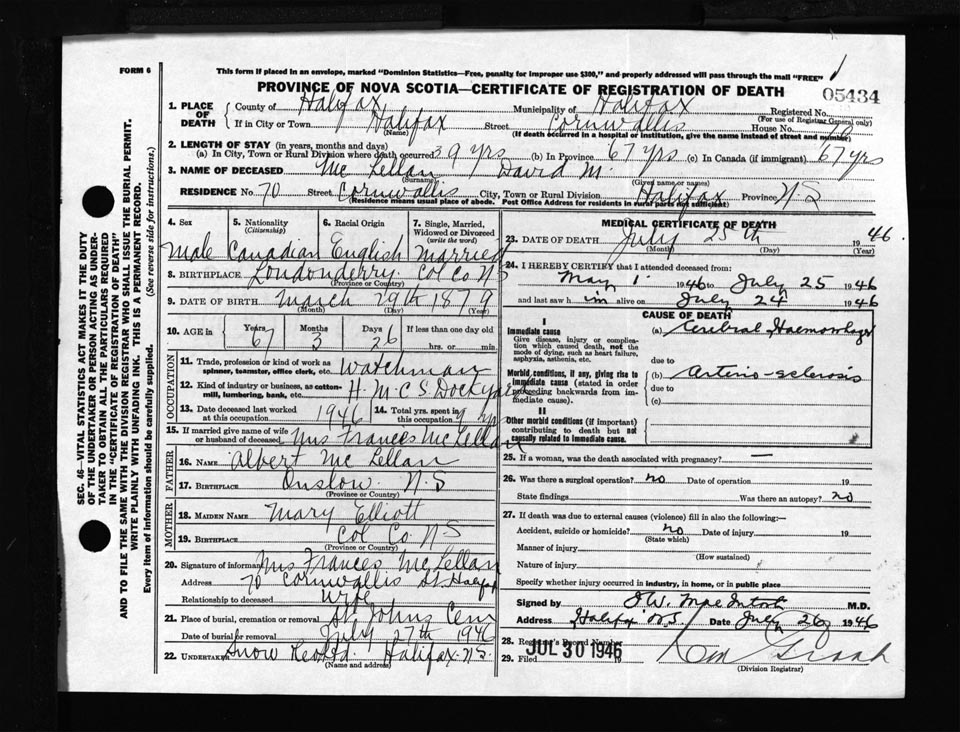 FORM 6
This form if placed in an envelope, marked "Dominion Statistics—Free, penalty for improper use $300," and properly addressed will pass through the mail "FREE"
PROVINCE OF NOVA SCOTIA—CERTIFICATE OF REGISTRATION OF DEATH
05434
1. PLACE OF DEATH
County of Halifax Municipality of Halifax Registered No.
(For use of Registrar General only)
If in City or Town Halifax Street Cornwallis House No. 70
(Name) (If death occurred in a hospital or institution, give the name instead of street and number)
2. LENGTH OF STAY (in years, months and days)
(a) In City, Town or Rural Division where death occurred 39 yrs (b) In Province 67 yrs (c) In Canada (if immigrant) 67 yrs
3. NAME OF DECEASED Mc Lellan David M.
(Surname) (Given name or names)
RESIDENCE No. 70 Street Cornwallis City, Town or Rural Division Halifax Province N S
(Residence means usual place of abode. Post Office Address for residents in rural parts not sufficient)
4. Sex 5. Nationality (Citizenship) 6. Racial Origin 7. Single, Married, Widowed or Divorced (write the word)
Male Canadian English Married
8. BIRTHPLACE Londonderry Col Co N S
(Province or Country)
9. DATE OF BIRTH March 29th 1879
(Month) (Day) (Year)
10. AGE in Years 67 Months 3 Days 26 If less than one day old
hrs. or min.
OCCUPATION
11. Trade, profession or kind of work as spinner, teamster, office clerk, etc. Watchman
12. Kind of industry or business, as cotton-mill, lumbering, bank, etc. H.M.C.S Dockyard
13. Date deceased last worked at this occupation 1946 14. Total yrs. spent in this occupation 9 yrs
15. If married give name of wife or husband of deceased Mrs Frances Mc Lellan
FATHER
16. NAME Albert Mc Lellan
17. BIRTHPLACE Onslow N.S
(Province or Country)
MOTHER
18. MAIDEN NAME Mary Elliott
19. BIRTHPLACE Col Co N S
(Province or Country)
20. Signature of informant Mrs Frances Mc Lellan
Address 70 Cornwallis St. Halifax
Relationship to deceased Wife
21. Place of burial, cremation or removal St. Johns Cem
Date of burial or removal July 27th 1946
22. Undertaker Snow & Co Ltd. Halifax N.S.
(Name and address)
MEDICAL CERTIFICATE OF DEATH
23. DATE OF DEATH July 25th 1946.
(Month) (Day) (Year)
24. I HEREBY CERTIFY that I attended deceased from:
May 1 1946 to July 25 1946
and last saw him alive on July 24 1946
CAUSE OF DEATH
I
Immediate cause (a) Cerebral Haemorrhage
Give disease, injury or complication which caused death, not the mode of dying, such as heart failure, asphyxia, asthenia, etc.
due to
Morbid conditions, if any, giving rise to immediate cause (stated in order proceeding backwards from immediate cause).
(b) Arterio-sclerosis
due to
(c)
II
Other morbid conditions (if important) contributing to death but not causally related to immediate cause.
25. If a woman, was the death associated with pregnancy? —
26. Was there a surgical operation? no Date of operation 19
State findings Was there an autopsy? no
27. If death was due to external causes (violence) fill in also the following:—
Accident, suicide or homicide? no Date of injury 19
(State which)
Manner of injury
(How sustained)
Nature of injury
Specify whether injury occurred in industry, in home, or in public place
Signed by M.D.
Address Halifax N.S. Date July 26 1946
28. Registrar's Record Number
29. Filed JUL 30 1946
(Division Registrar)
SEC. 46—VITAL STATISTICS ACT MAKES IT THE DUTY
OF THE UNDERTAKER OR PERSON ACTING AS UNDER-
TAKER TO OBTAIN ALL THE PARTICULARS REQUIRED
IN THE "CERTIFICATE OF REGISTRATION OF DEATH"
AND TO FILE THE SAME WITH THE DIVISION REGISTRAR WHO SHALL ISSUE THE BURIAL PERMIT.
WRITE PLAINLY WITH UNFADING INK. THIS IS A PERMANENT RECORD.
Every item of information should be carefully supplied. (See reverse side for instructions.)